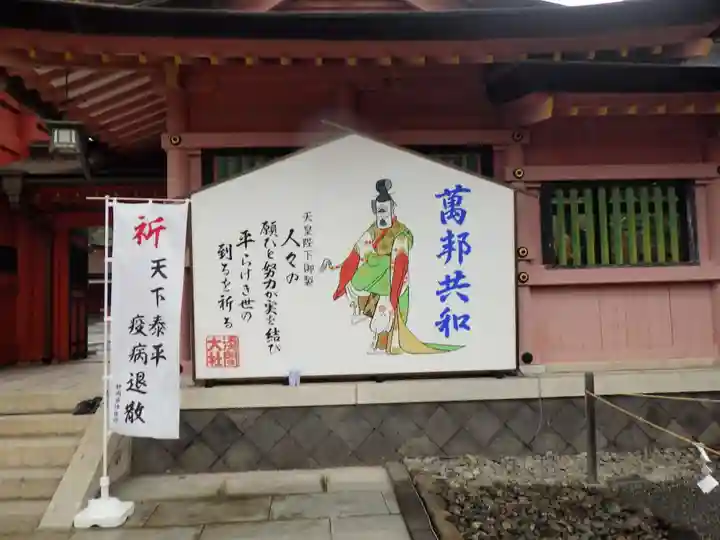 萬邦共和
天皇陛下御製
人々の
願ひと努力が実を結び
平らけき世の
到るを祈る
浅間
大社
祈
天下泰平
疫病退散